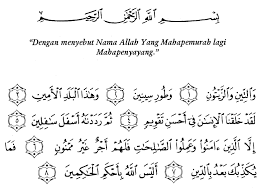 بِسْمِ اللَّهِ الرَّحْمَٰنِ الرَّحِيمِ
“Dengan menyebut Nama Allah Yang Mahapemurah lagi
Mahapenyayang.”
وَالتِّينِ وَالزَّيْتُونِ ١ وَطُورِ سِينِينَ ٢ وَهَٰذَا الْبَلَدِ الْأَمِينِ ٣
لَقَدْ خَلَقْنَا الْإِنسَٰنَ فِي أَحْسَنِ تَقْوِيمٍ ٤ ثُمَّ رَدَدْنَٰهُ أَسْفَلَ سَٰفِلِينَ ٥
إِلَّا الَّذِينَ ءَامَنُوا وَعَمِلُوا الصَّٰلِحَٰتِ فَلَهُمْ أَجْرٌ غَيْرُ مَمْنُونٍ ٦ فَمَا
يُكَذِّبُكَ بَعْدُ بِالدِّينِ ٧ أَلَيْسَ اللَّهُ بِأَحْكَمِ الْحَٰكِمِينَ ٨